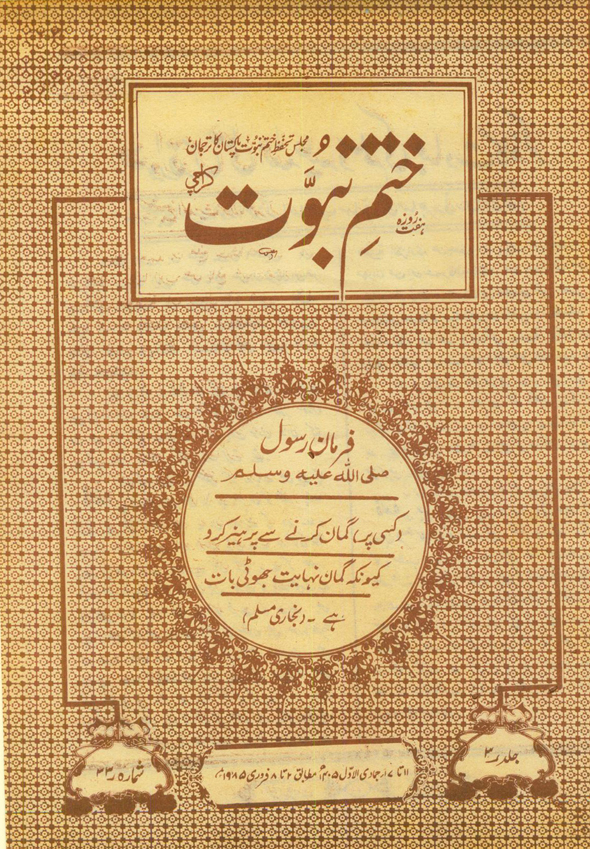 مجلس تحفظ ختم نبوت پاکستان کا ترجمان
ہفت روزہ
ختمِ نبوّت
کراچی
فرمان رسول
صلی اللہ علیہ وسلم
(کسی پر) گمان کرنے سے پرہیز کرو
کیونکہ گمان نہایت جھوٹی بات
ہے ۔ (بخاری مسلم)
جلد ۳
۱۱ تا ۱۷ جمادی الاول ۱۴۰۵ھ مطابق ۲ تا ۸ فروری ۱۹۸۵ء
شمارہ ۳۳